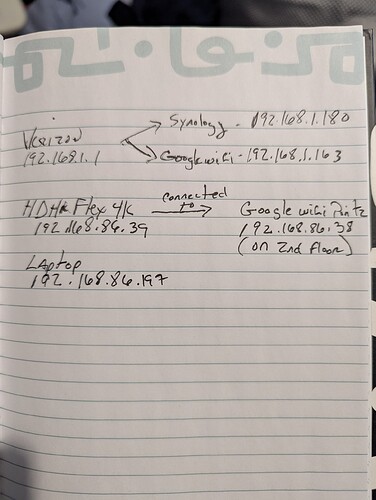 Synology - 192.168.1.180
Verizon
192.168.1.1
Google wifi - 192.168.1.163
HDHR Flex 4K connected to Google wifi Point 2
192.168.86.39 192.168.86.38
(on 2nd Floor)
Laptop
192.168.86.197